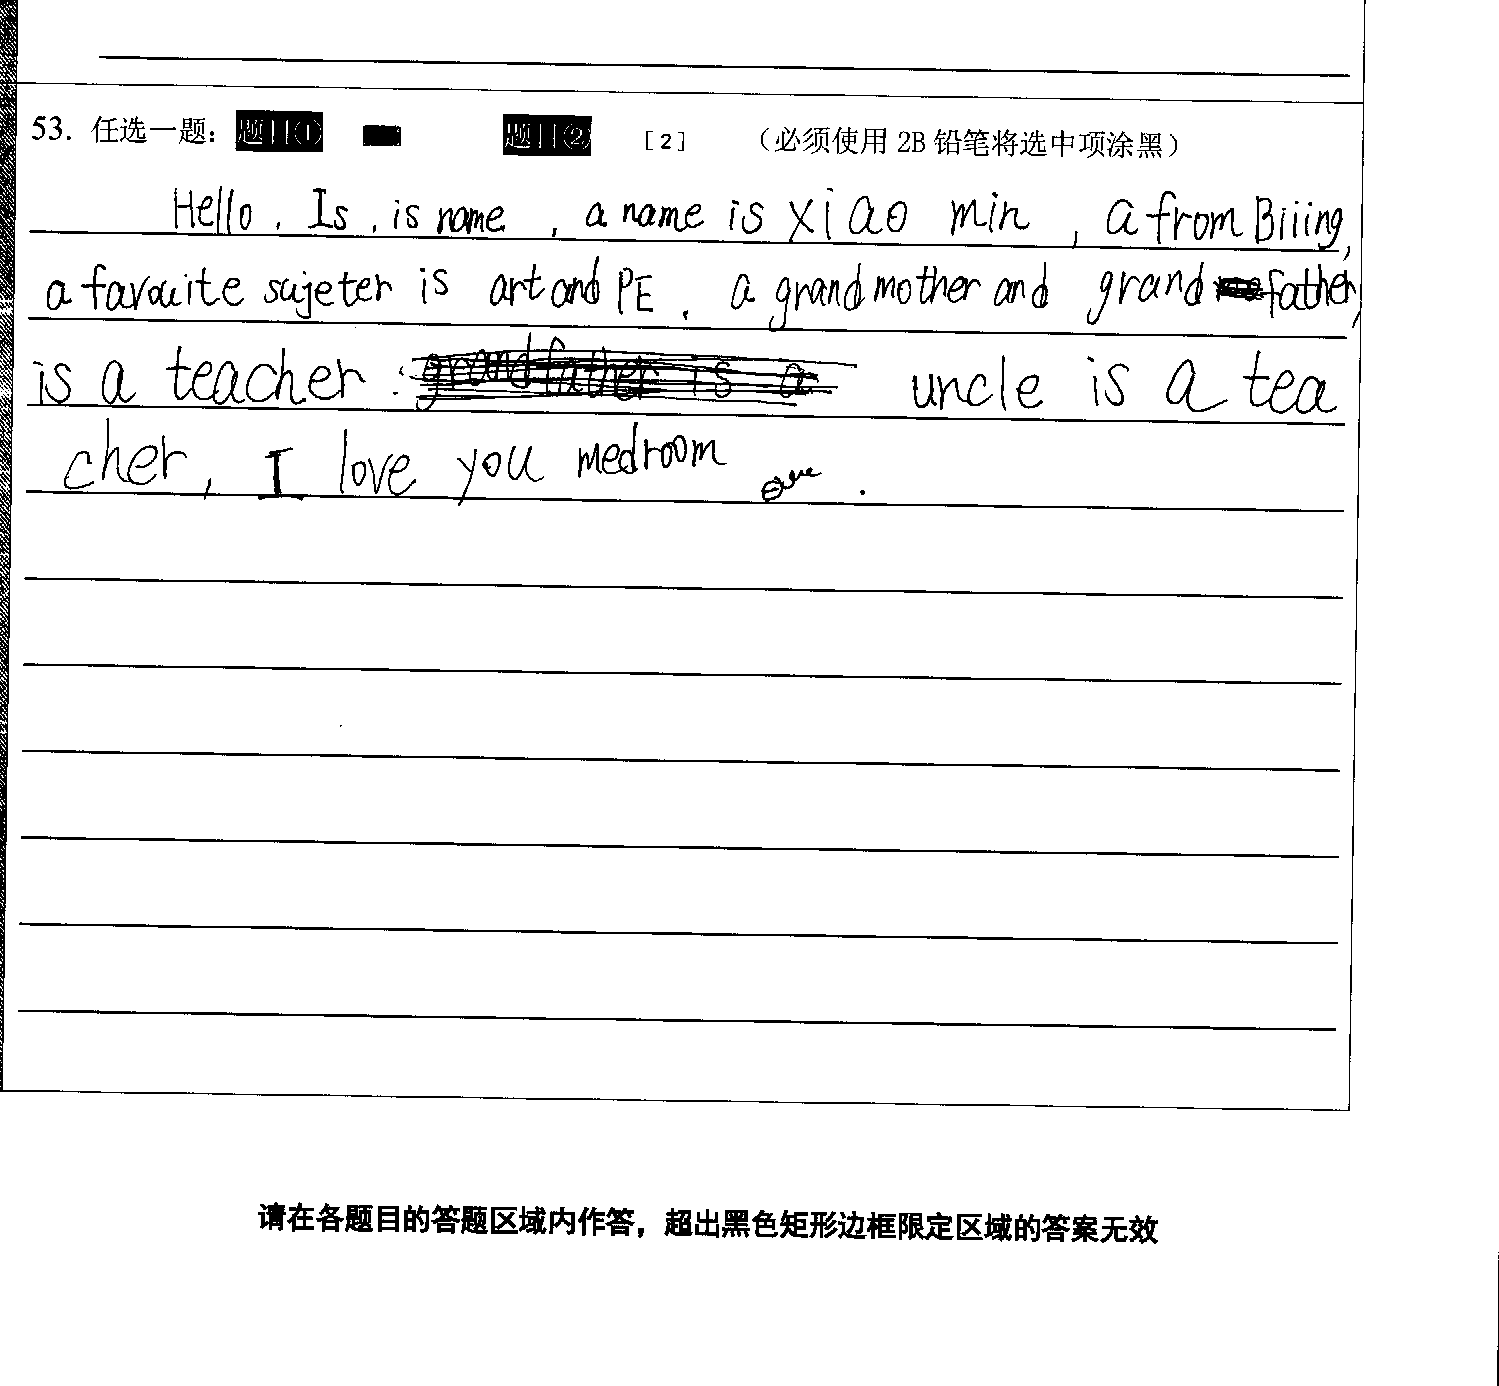 53. 任选一题: 题目① 题目② [2] (必须使用 2B 铅笔将选中项涂黑)
Hello. Is. is name, a name is xiao min, a from Biiing,
a favouite sujeter is art and PE. a grandmother and grand father,
is a teacher. uncle is a tea
cher, I love you medroom .
请在各题目的答题区域内作答，超出黑色矩形边框限定区域的答案无效